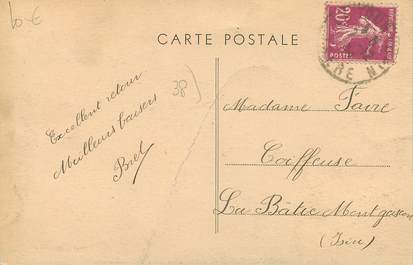 10-€
CARTE POSTALE
20c
POSTES
38)
Excellent retour
Meilleurs baisers
Bret
Madame Faire
Coiffeuse
La Bâtie Montgascon
(Isère)